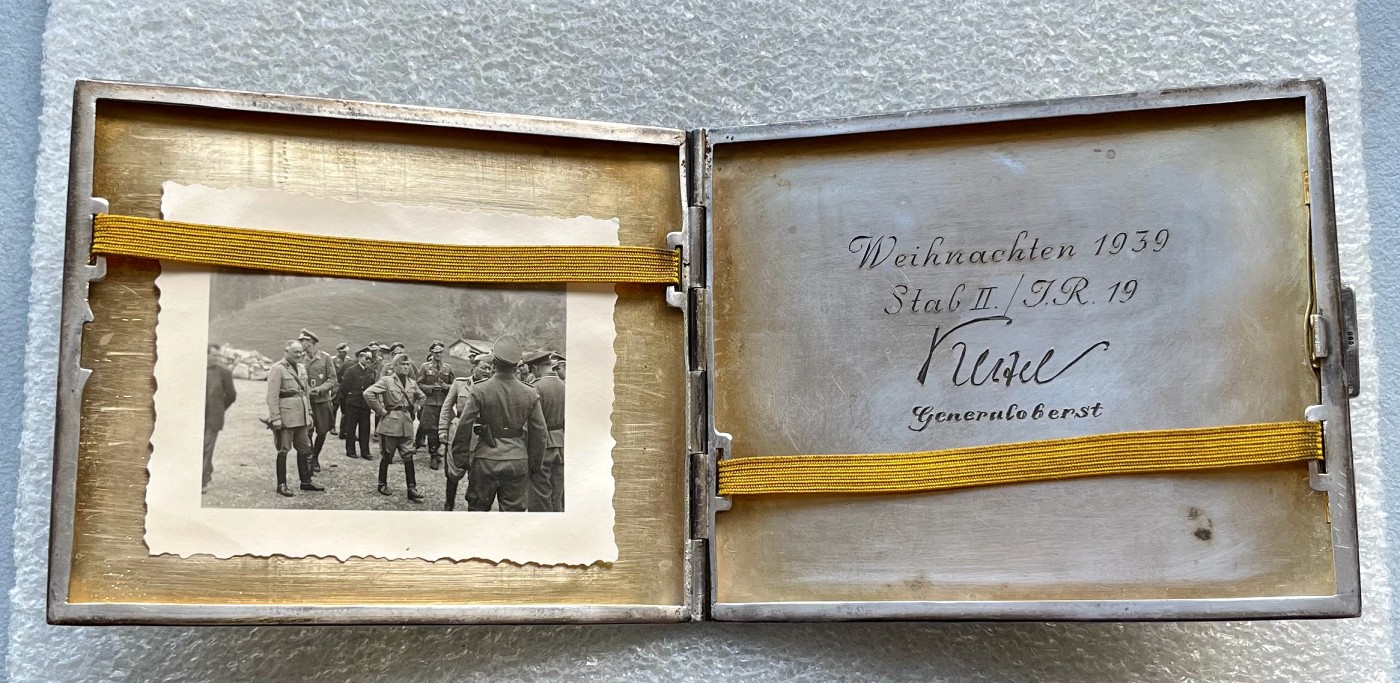 Weihnachten 1939
Stab II./I.R. 19
Keitel
Generaloberst